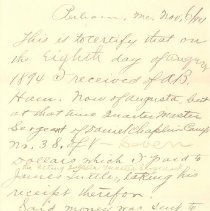 Pelham, Me, Nov.
This is to certify that on
the Eighth day of August
1894 I received of A.B.
Ham. Now of Augusta but
at that time Quarter Master
Sergeant of Daniel Chaplin Camp
No. 38, of V - Seven
Dollars which I paid to
James taking his
receipt therefor.
Said money was sent to